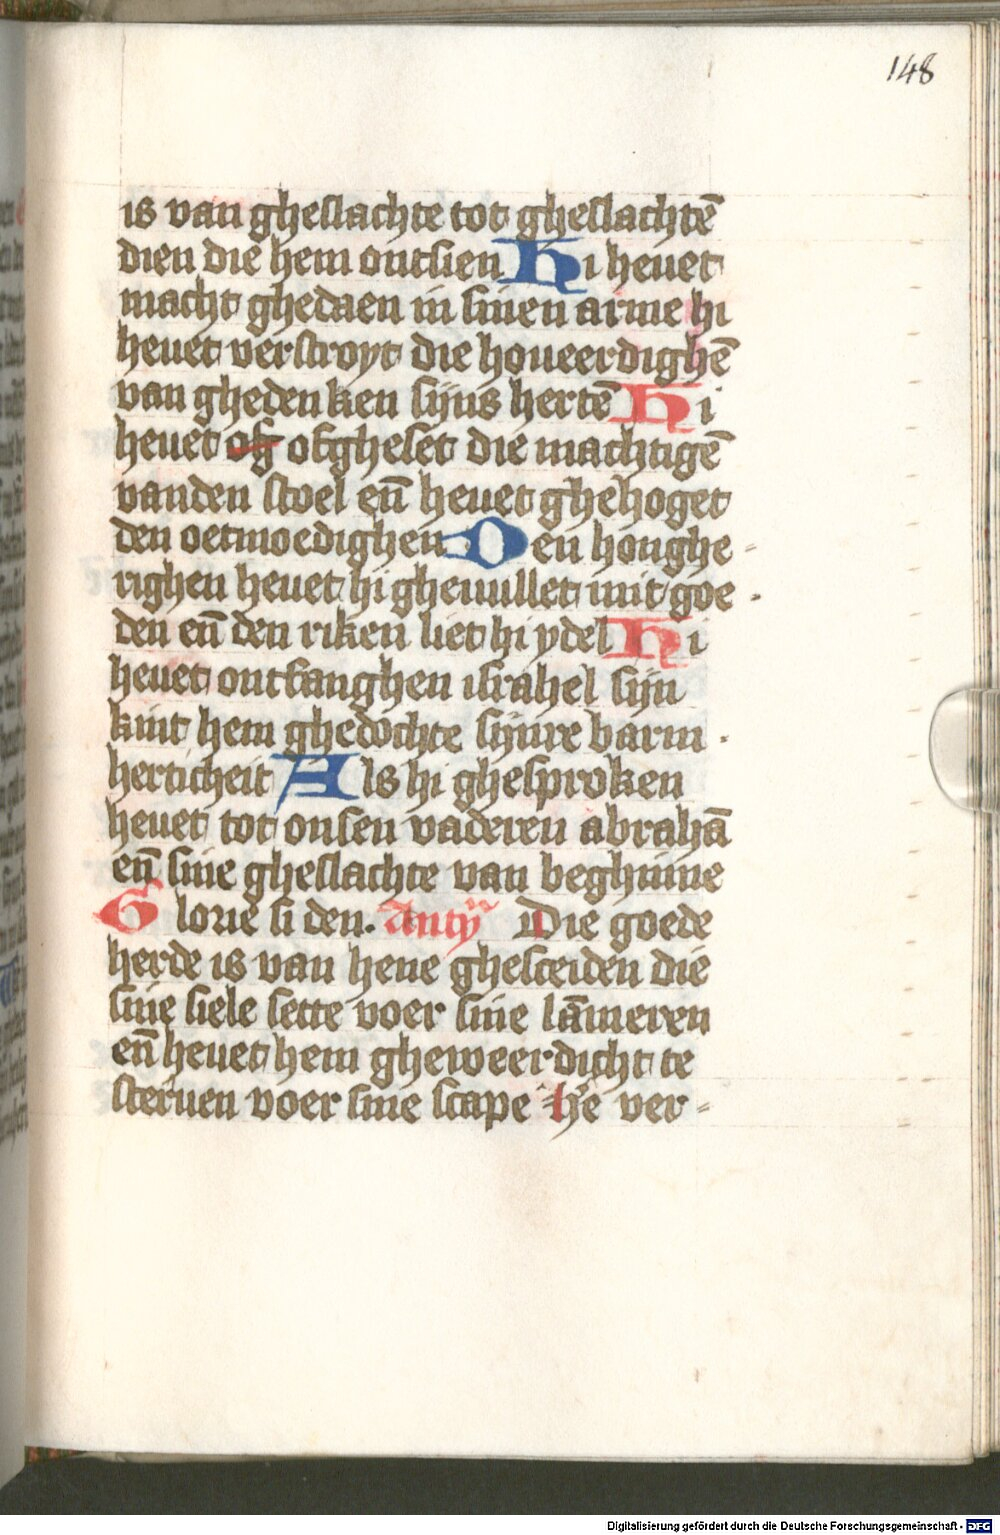 148
is van gheslachte tot gheslachtē
dien die hem ontsien Hi heuet
macht ghedaen in sinen arme hi
heuet verstroyt die houeerdighē
van ghedenken sijns hertē Hi
heuet of ofgheset die machtigē
vanden stoel eñ heuet ghehoget
den oetmoedighen Den honghe-
righen heuet hi gheuullet mit goe
den eñ den riken liet hi ydel Hi
heuet ontfanghen israhel sijn
kint hem ghedochte sijnre barm-
herticheit Als hi ghesproken
heuet tot onsen vaderen abrahā
eñ sine gheslachte van beghinne
Glorie si den. Anty Die goede
herde is van hene ghesceiden die
sine siele sette voer sine lāmeren
eñ heuet hem gheweerdicht te
steruen voer sine scape hē ver-
Digitalisierung gefördert durch die Deutsche Forschungsgemeinschaft - DFG